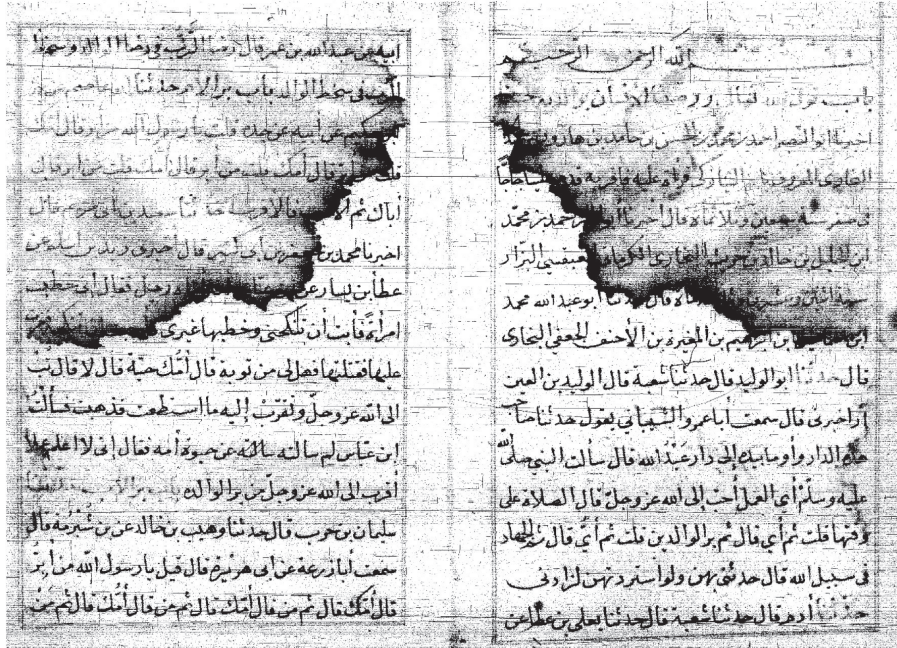 بسم الله الرحمن الرحيم
باب قول الله تعالى ووصينا الانسان بوالديه
اخبرنا ابو النصر احمد بن محمد بن الحسن بن حامد بن هارون بن
البخارى المعروف بابن النيازكى قراة عليه فاقربه قدم علينا حاجا
فى صفر سنة سبعين وثلاثماة قال اخبرنا ابو احمد بن محمد
ابن الجليل بن خالد بن حريث البخارى الكرمانى العبقسى البزار
سنة اثنتين وعشرين قال حدثنا ابو عبد الله محمد
ابن بن ابرهيم بن المغيرة بن الأحنف الجعفى البخارى
قال حدثنا ابو الوليد قال حدثنا شعبة قال الوليد بن العيز
ار اخبرنى قال سمعت أبا عمرو الشيبانى يقول حدثنا صاحب
هذه الدار وأومأ بيده إلى دار عبد الله قال سألت النبى صلى الله
عليه وسلم أى العمل أحب إلى الله عز وجل قال الصلاة على
وقتها قلت ثم أى قال ثم بر الوالدين قلت ثم أى قال ثم الجهاد
فى سبيل الله قال حدثنى بهن ولو استزدته لزادنى
حدثنا آدم قال حدثنا شعبة قال حدثنا يعلى بن عطا عن
ابيه عن عبد الله بن عمر قال رضا الرب فى رضا الوالد وسخط
الرب فى سخط الوالد باب بر الام حدثنا ابو عاصم عن
بن حكيم عن أبيه عن جده قلت يا رسول الله من ابر قال امك
قلت من ابر قال أمك قلت من أبر قال أمك قلت من ابر قال
أباك ثم الأقرب فالأقرب حدثنا سعيد بن أبى مريم قال
اخبرنا محمد بن جعفر بن أبى كثير قال اخبرنى زيد بن اسلم عن
عطا بن يسار عن رجل فقال إنى خطبت
امرأة فأبت أن تنكحنى وخطبها غيرى
عليها فقتلتها فهل لى من توبة قال أمك حية قال لا قال تب
الى الله عز وجل وتقرب إليه ما استطعت فذهبت فسألت
ابن عباس لم سالته عن حيوة أمه فقال إنى لا اعلم عملا
أقرب الى الله عز وجل من بر الوالدة باب بر الأب حدثنا
سليمان بن حرب قال حدثنا وهيب بن خالد عن بن شبرمة قال
سمعت أبا زرعة عن ابى هريرة قال قيل يا رسول الله من أبر
قال أمك قال ثم من قال أمك قال ثم من قال أمك قال ثم من